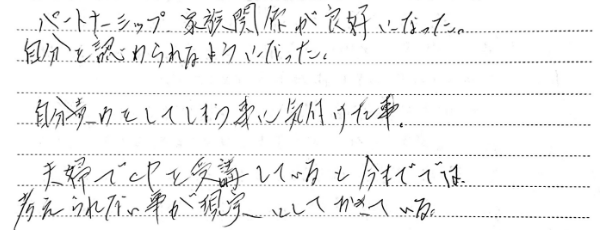 パートナーシップ 家族関係が良好になった。
自分を認められるようになった。
自分責めをしてしまう事に気付けた事。
夫婦でCPを受講していると今まででは
考えられない事が現実としておきている。